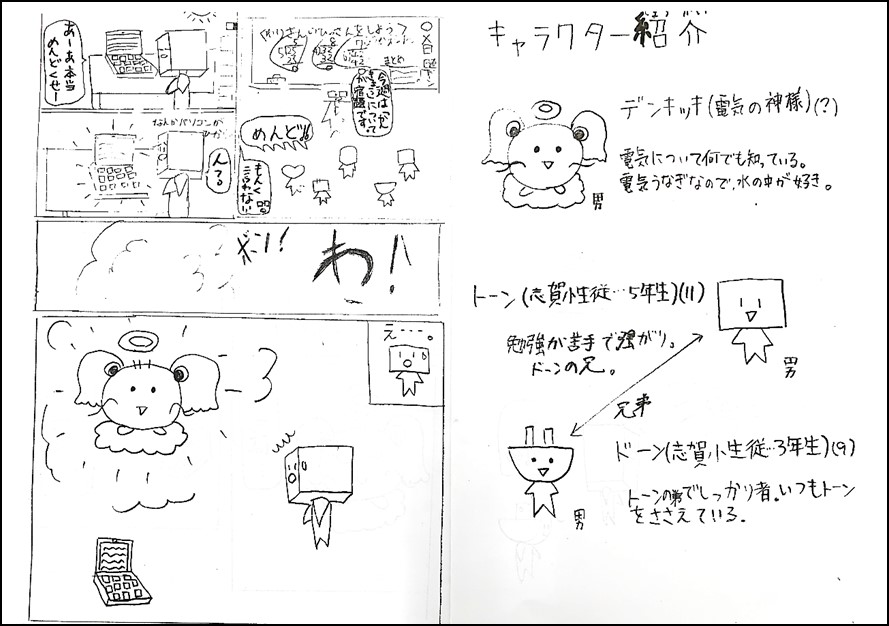 キャラクター紹介
しょう かい
デンキッキ(電気の神様)(?)
電気について何でも知っている。
電気うなぎなので、水の中が好き。
男
トーン(志賀小生従…5年生)(11)
勉強が苦手で強がり。
ドーンの兄。
男
兄弟
ドーン(志賀小生従…3年生)(9)
トーンの弟でしっかり者。いつもトーン
をささえている。
男
まとめ
もんく
言わない
あーあ本当
めんどくせー
なんかパソコンが
ボン!
わ!
え…。